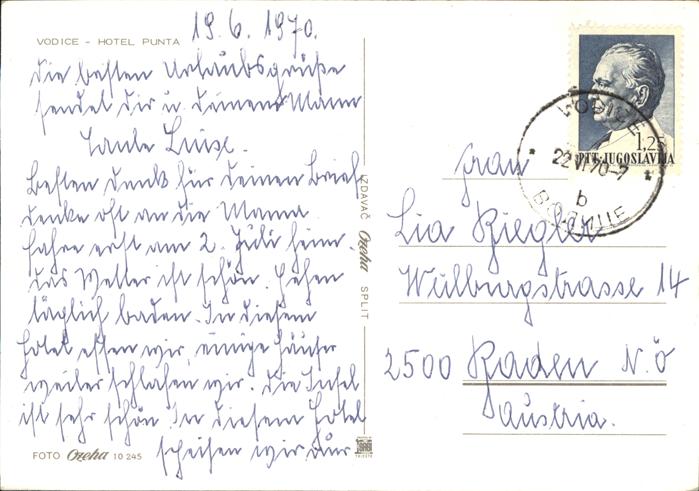 19.6.1970.
VODICE - HOTEL PUNTA
die besten Urlaubsgrüße
sendet dir u. deinem Mann
Tante Luise.
Besten dank für deinen Brief
denke oft an die Mama.
fahre erst am 2. Juli heim.
das Wetter ist schön. Gehen
täglich baden. In diesem
Hotel essen wir, einige Häuser
weiter schlafen wir. die Insel
ist sehr schön. In diesem Hotel
speisen wir nur
FOTO Ozeha 10 245
IZDAVAČ Ozeha SPLIT
1,25
PTT JUGOSLAVIJA
VODICE
22 VI 70-7
b
Frau
Lia Riegler
Wüllburgstrasse 14
2500 Baden N.Ö
Austria.